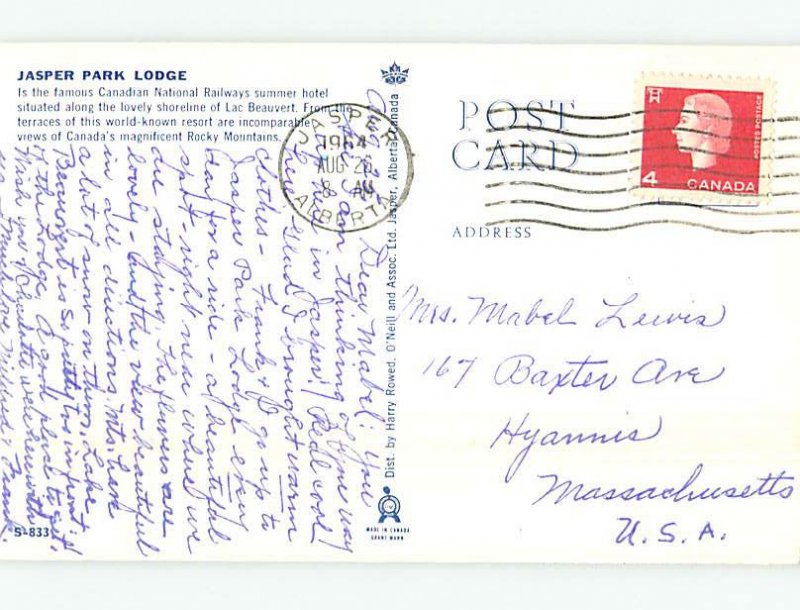 JASPER PARK LODGE
Is the famous Canadian National Railways summer hotel
situated along the lovely shoreline of Lac Beauvert. From the
terraces of this world-known resort are incomparable
views of Canada's magnificent Rocky Mountains.
Dear Mabel: You
are again thinking of you way
up here in Jasper! Real cool!
but glad I brought warm
clothes - Frank & I go up to
Jasper Park Lodge every
Hour for a ride - a beautiful
spot - right near where we
are staying. The flowers are
lovely - and the view beautiful
in all directions. Mts. have
a lot of snow on them. Lake
Beauvert is so pretty in front
of the Lodge. A good place to sit!
Wish you & Charlotte were here with
us. Much love Mildred & Frank
S-833
Dist. by Harry Rowed. O'Neill and Assoc. Ltd. Jasper, Alberta, Canada
MADE IN CANADA
GRANT MANN
JASPER
1964
AUG 26
8 AM
ALBERTA
POST
CARD
ADDRESS
4
CANADA
POSTES POSTAGE
Mrs. Mabel Lewis
167 Baxter Ave
Hyannis
Massachusetts
U.S.A.